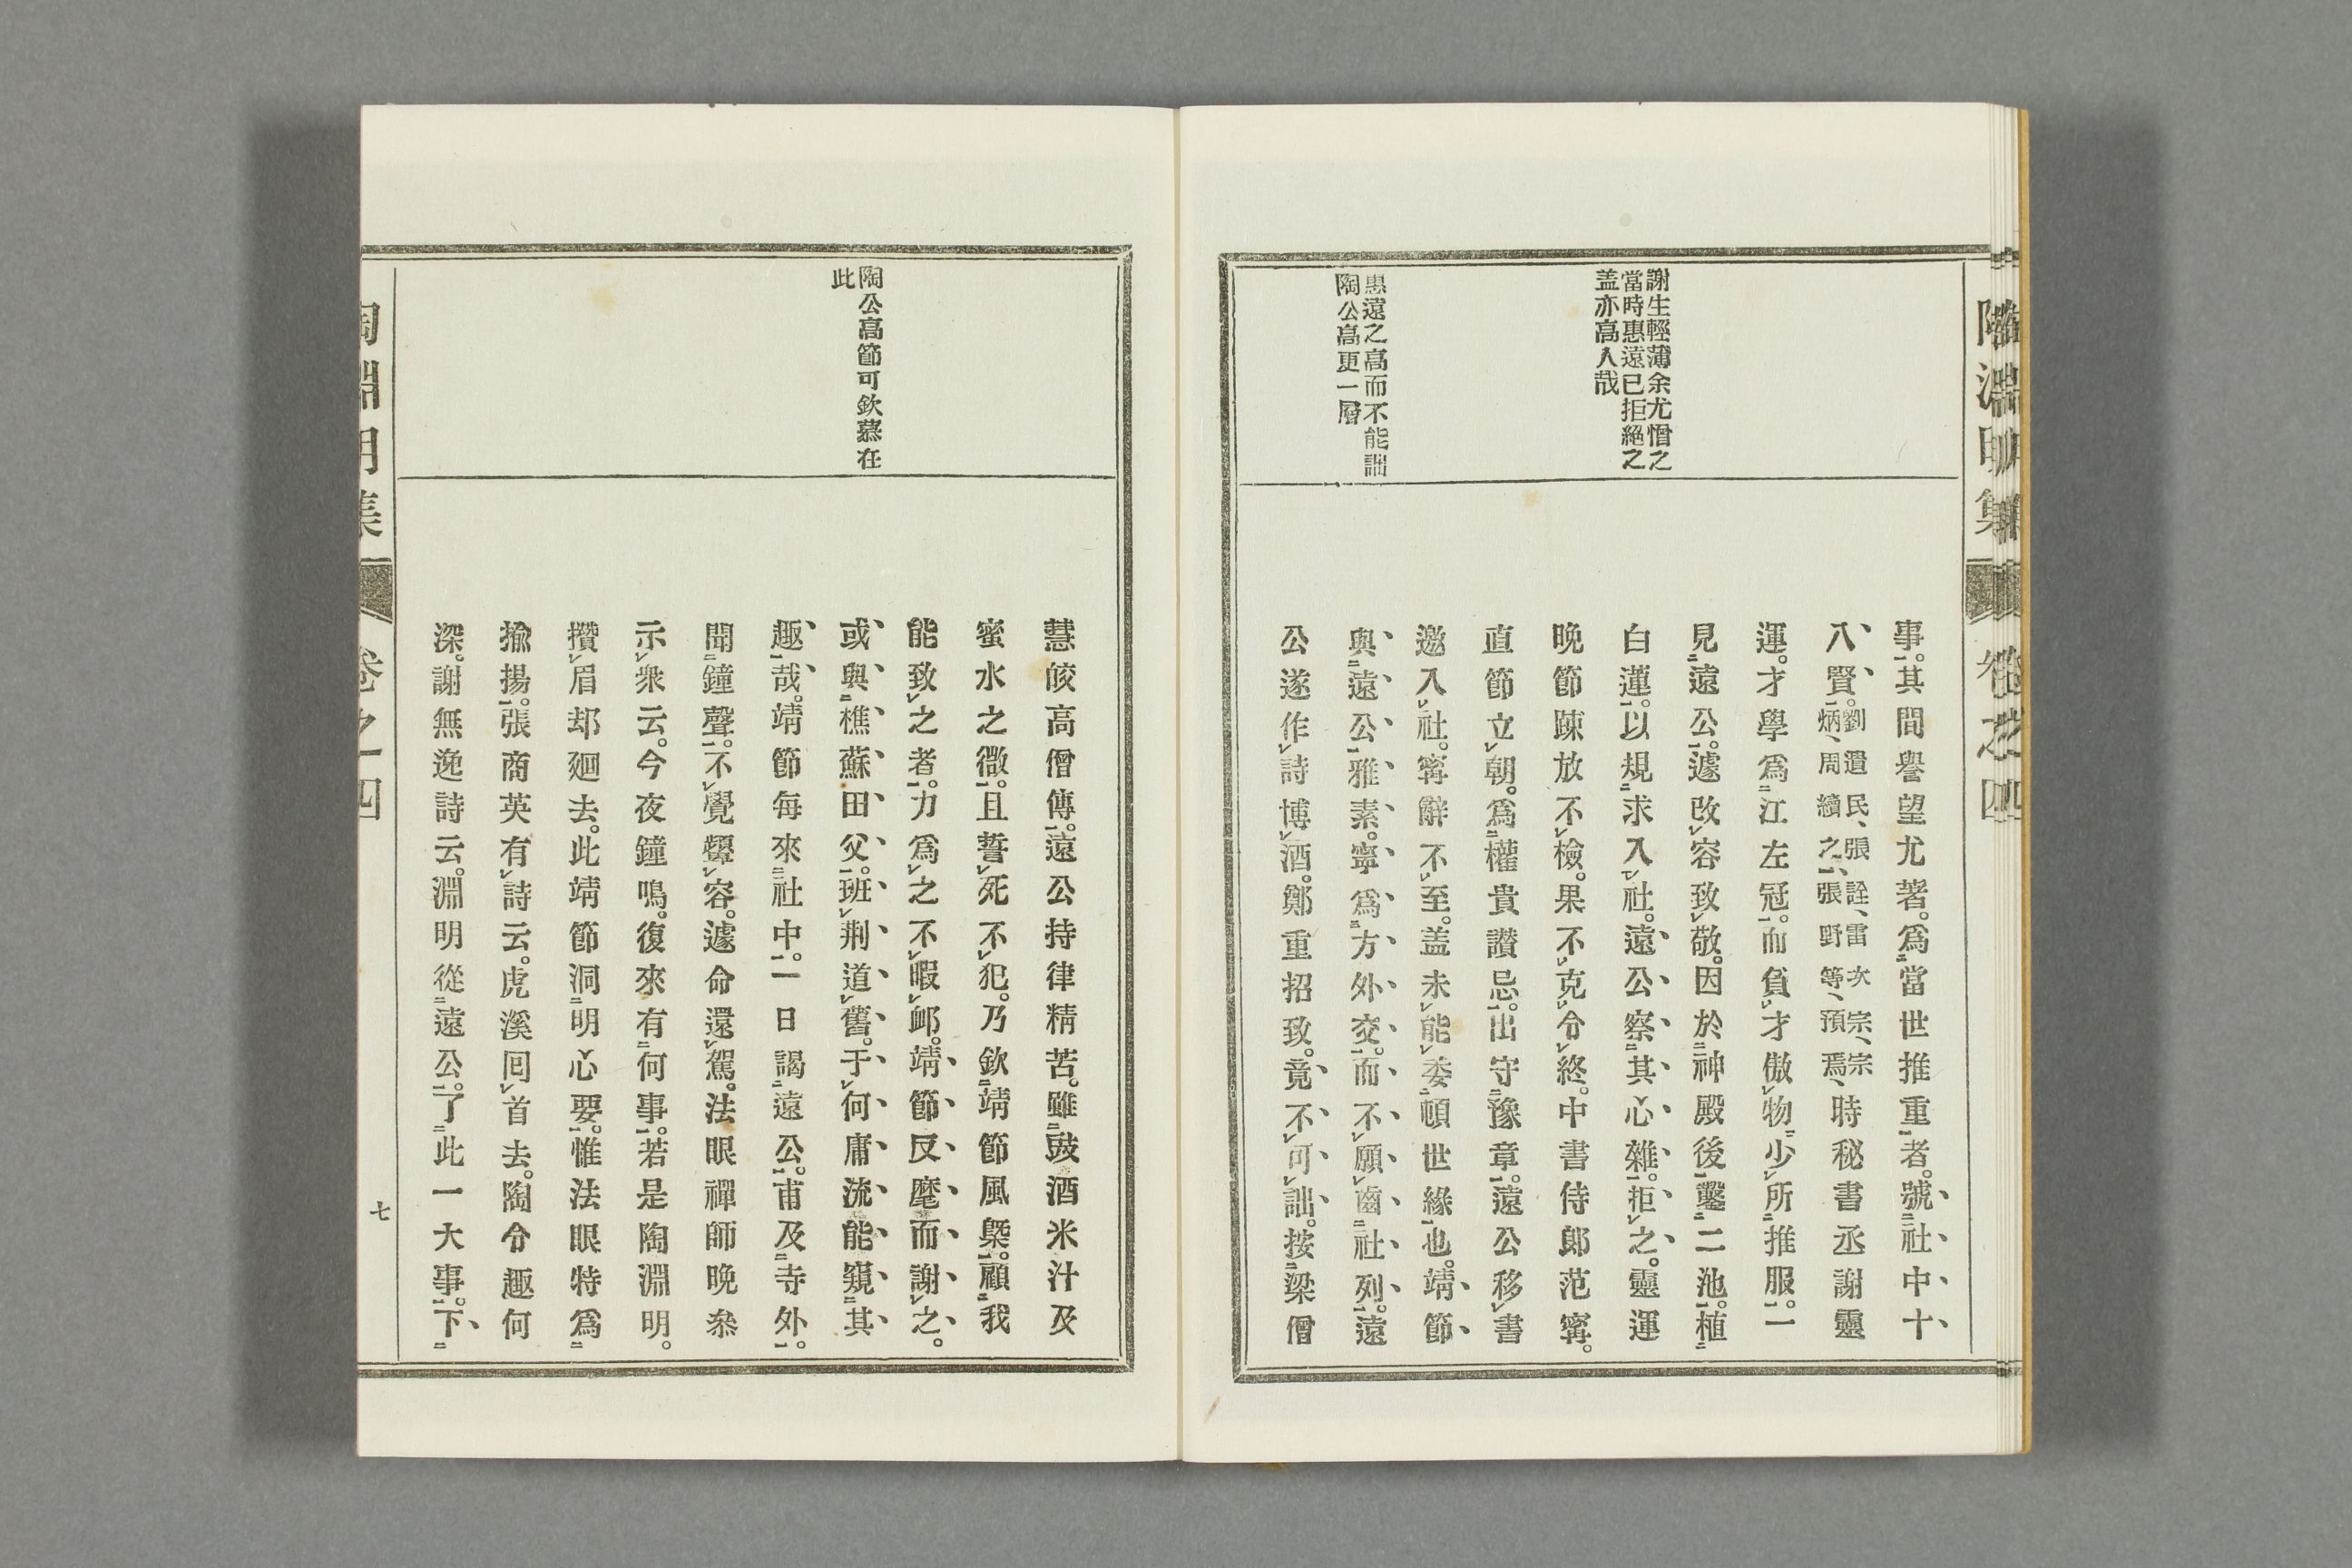 陶淵明集 卷之四
謝生輕薄余尤憎之
當時惠遠已拒絕之
盖亦高人哉
惠遠之高而不能詘
陶公高更一層
事。其間譽望尤著。爲當世推重者。號社中十
八賢。劉遺民、張詮、雷次宗、宗
炳、周續之、張野等、預焉、時秘書丞謝靈
運。才學爲江左冠。而負才傲物少所推服。一
見遠公。遽改容致敬。因於神殿後鑿二池。植
白蓮。以規求入社。遠公察其心雜。拒之。靈運
晩節踈放不檢。果不克令終。中書侍郞范寗。
直節立朝。爲權貴讃忌。出守豫章。遠公移書
邀入社。寗辭不至。盖未能委頓世緣也。靖節
與遠公雅素。寧爲方外交。而不願齒社列。遠
公遂作詩博酒。鄭重招致。竟不可詘。按梁僧
陶公高節可欽慕在
此
慧皎高僧傳。遠公持律精苦。雖豉酒米汁及
蜜水之微。且誓死不犯。乃欽靖節風槩。顧我
能致之者。力爲之不暇邺。靖節反麾而謝之。
或與樵蘇田父。班荆道舊。于何庸流能窺其
趣哉。靖節每來社中。一日謁遠公。甫及寺外。
聞鐘聲。不覺顰容。遽命還駕。法眼禪師晩叅
示衆云。今夜鐘鳴。復來有何事。若是陶淵明。
攢眉却廻去。此靖節洞明心要。惟法眼特爲
揄揚。張商英有詩云。虎溪回首去。陶令趣何
深。謝無逸詩云。淵明從遠公。了此一大事。下
陶淵明集 卷之四
七